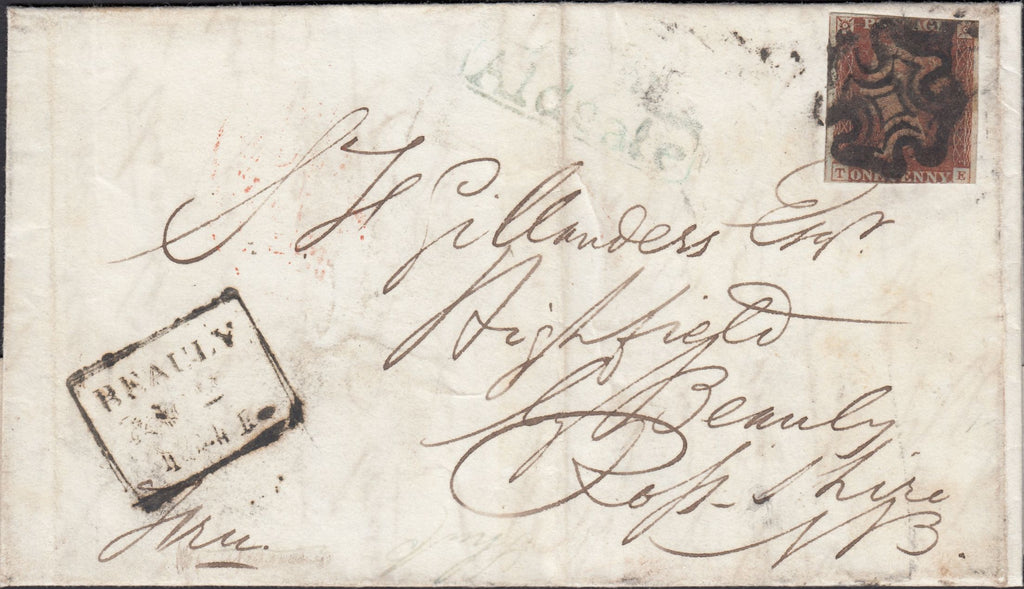 POSTAGE
T ONE PENNY E
Aldgate
Gillanders Esqr
Highfield
By Beauly
Ross-Shire
NB.
BEAULY